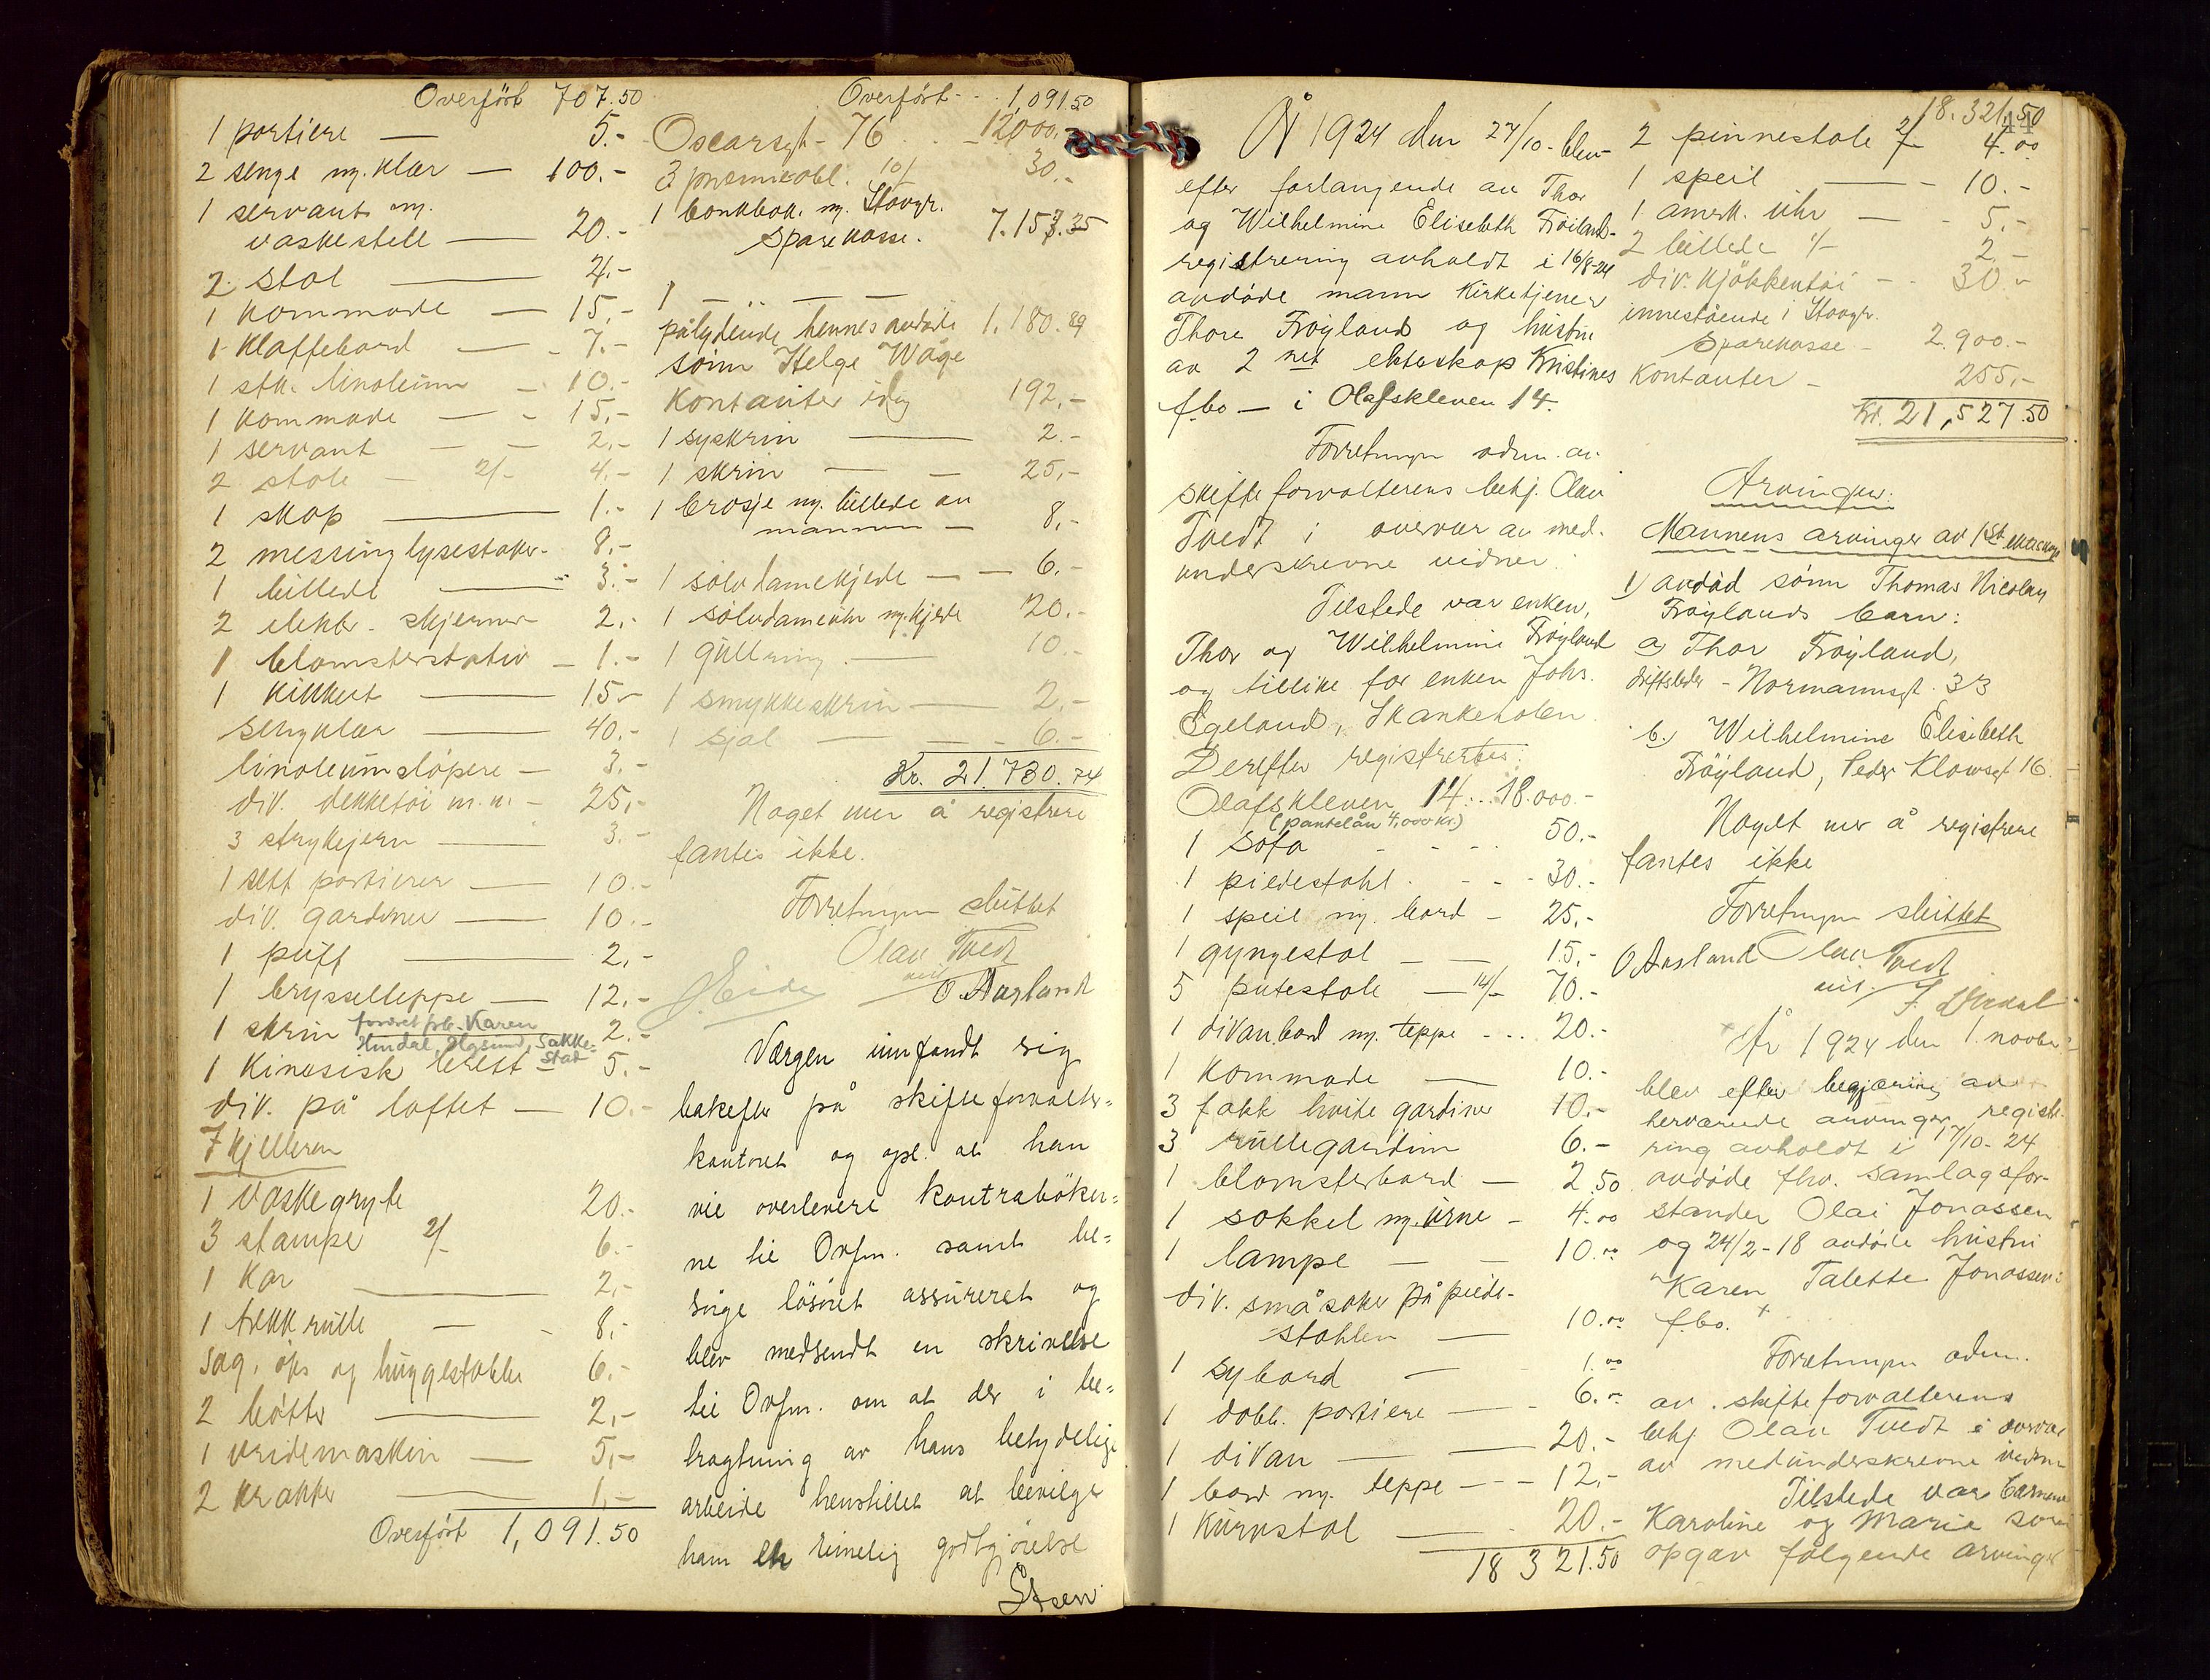 Overført 707.50
1 portiere — 5.-
2 senge m. klær — 100.-
1 servant m.
vaskestell — 20.-
2 stol — 4.-
1 kommode — 15.-
1 klaffebord — 7.-
1 stk. linoleum — 10.-
1 kommode — 15.-
1 servant — 2.-
2 stole — 2/- 4.-
1 skap — 1.-
2 messing lysestaker - 8.-
1 billede — 3.-
2 elektr. skjermer 2.-
1 blomsterstativ — 1.-
1 kikkert — 15.-
sengklær — 40.-
linoleumsløpere — 3.-
div. dekketøi m.m. - 25.-
3 strykejern — 3.-
1 sett portierer — 10.-
div. gardiner — 10.-
1 puff — 2.-
1 brysselteppe — 12.-
1 skrin 2.-
1 kinesisk brett 5.-
div. på loftet — 10.-
I kjelleren
1 vaskegryte 20.-
3 stampe 2/- 6.-
1 kar — 2.-
1 trekkrulle — 8.-
sag, øks og huggestabbe 6.-
2 bøtter — 2.-
1 vridemaskin — 5.-
2 krakker — 1.-
Overført 1,091.50
Overført - 1,091.50
Oscarsgt - 76 12000.-
3 premieobl. 10/- 30.-
1 bankbok m. Stavgr.
Sparekasse. 7.153.35
1 — — —
pålydende hennes avdøde 1.180.89
sønn Helge Wåge
Kontanter idag 192.-
1 syskrin — 2.-
1 skrin — 25.-
1 brosje m. billede av
mannen — 8.-
1 sølv damekjede — 6.-
1 sølvdameuhr m. kjede 20.-
1 gullring — 10.-
1 smykkeskrin — 2.-
1 sjal — 6.-
Kr. 21.730.74
Noget mer å registrere
fantes ikke.
Forretningen sluttet
Olav Tvedt
J. Eide O. Aarsland
Værgen innfandt sig
bakefter på skifteforvalter=
kontoret og opl. at han
vil overlevere kontrabøker=
ne til Ovfm. samt be=
sørge løsøret assureret og
blev medsendt en skrivelse
til Ovfm. om at der i be=
tragtning av hans betydelige
arbeide henstilles at bevilge
ham en rimelig godtgjørelse
Steen
År 1924 den 27/10 - blev
efter forlangende av Thor
og Wilhelmine Elisebeth Frøiland
registrering avholdt i 16/8-24
avdøde mann kirketjener
Thore Frøyland og hustru
av 2net ekteskap Kristines
f.bo — i Olafskleven 14.
Forretningen adm. av
skifteforvalterens bekj. Olav
Tvedt i overvær av med-
underskrevne vidner.
Tilstede var enken,
Thor og Wilhelmine Frøyland
og tillike for enken Johs.
Egeland, Skankeholen.
Derefter registrertes:
Olafskleven 14... 18.000.-
(pantelån 4,000 kr.)
1 sofa 50.-
1 piedestahl 30.-
1 speil m. bord - 25.-
1 gyngestol — 15.-
5 putestole — 14/- 70.-
1 divanbord m. teppe ... 20.-
1 kommode — 10.-
3 fakk hvite gardiner 10.-
3 rullegardiner 6.-
1 blomsterbord — 2.50
1 sokkel m. urne - 4.00
1 lampe — 10.00
div. småsaker på piede-
stahlen — 10.00
1 sybord — 1.00
1 dobb. portiere — 6.-
1 divan — 20.-
1 bord m. teppe — 12.-
1 kurvstol — 20.-
18 321.50
44
18.321.50
2 pinnestole 2/- 4.00
1 speil — 10.-
1 amerk. uhr — 5.-
2 billede 1/- 2.-
div. kjøkkentøi - 30.-
innestående i Stavgr.
Sparekasse - 2.900.-
Kontanter - 255.-
Kr. 21,527.50
Arvinger:
Mannens arvinger av 1ste ekteskap
1) avdød sønn Thomas Nicolay
Frøylands barn:
a) Thor Frøyland,
driftsleder - Normannsgt. 33
b.) Wilhelmine Elisebeth
Frøyland, Peder Klowsgt 16.
Noget mer å registrere
fantes ikke
Forretningen sluttet
O Aarsland Olav Tvedt
År 1924 den 1. novbr.
blev efter begjæring av
herværende arvinger registe-
ring avholdt i 17/10-24
avdøde fhv. samlagsfor-
stander Olai Jonassen
og 24/2-18 avdøde hustru
Karen Talette Jonassens
f.bo.
Forretningen adm.
av skifteforvalterens
bekj. Olav Tvedt i overvær
av medunderskrevne vidner
Tilstede var barnene
Karoline og Marie som
opgav følgende arvinger